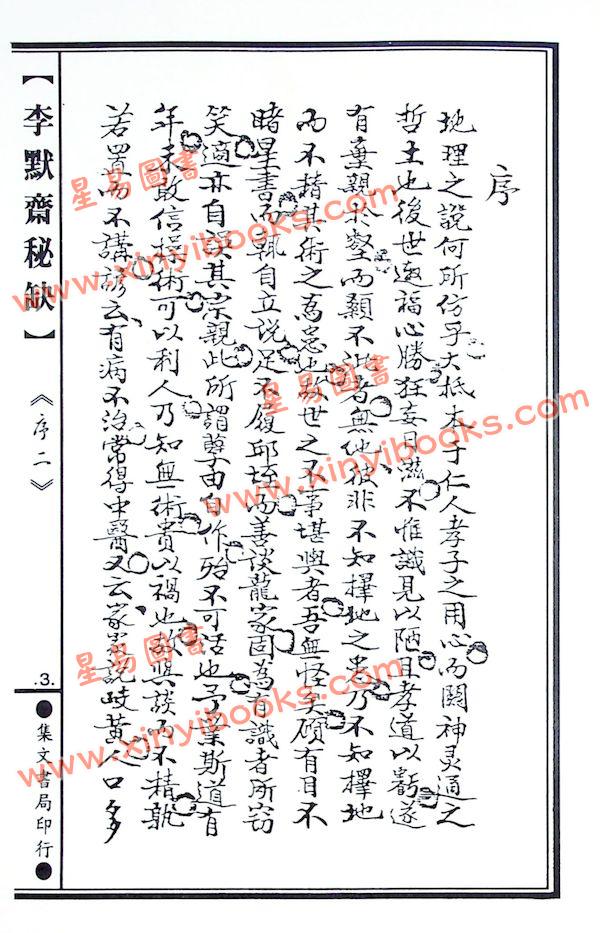 序
地理之說何所仿乎大抵本于仁人孝子之用心而闢神灵通之
哲士也後世邀福心勝狂妄日滋不惟識見以陋且孝道以虧遂
有棄親於壑而顯不泚者無他彼非不知擇地之患乃不知擇地
而不精其術之為患也歟世之不事堪輿者吾無怪矣碩有目不
睹星書而執自立說足不履邱垤而善談龍家固為有識者所窃
笑適亦自誤其宗親此所謂孽由自作殆不可活也予業斯道有
年未敢信操術可以利人乃知無術貴以禍也歟與談而不精孰
若置而不講諺云有病不治常得中醫又云家家說岐黃人口多
【李默齋秘缺】
《序二》
.3.
●集文書局印行●
星易圖書
www.xinyibooks.com
星易圖書
www.xinyibooks.com
星易圖書
www.xinyibooks.com